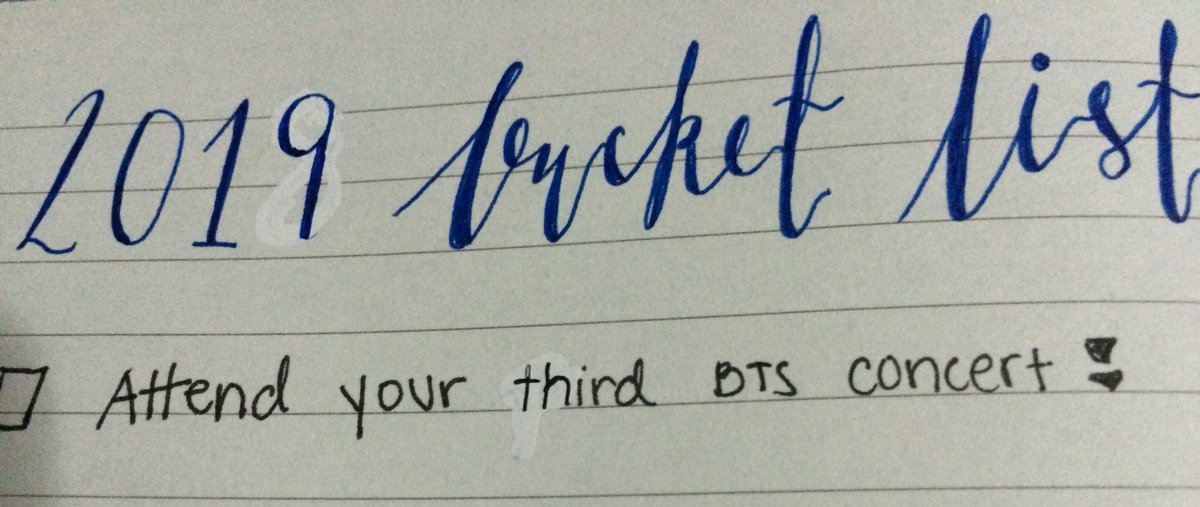 2019 bucket list
Attend your third BTS concert